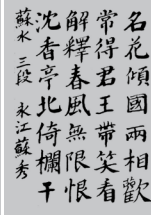 名花傾國兩相歡
常得君王帶笑看
解釋春風無限恨
沈香亭北倚欄干
蘇水 三段 永江蘇秀